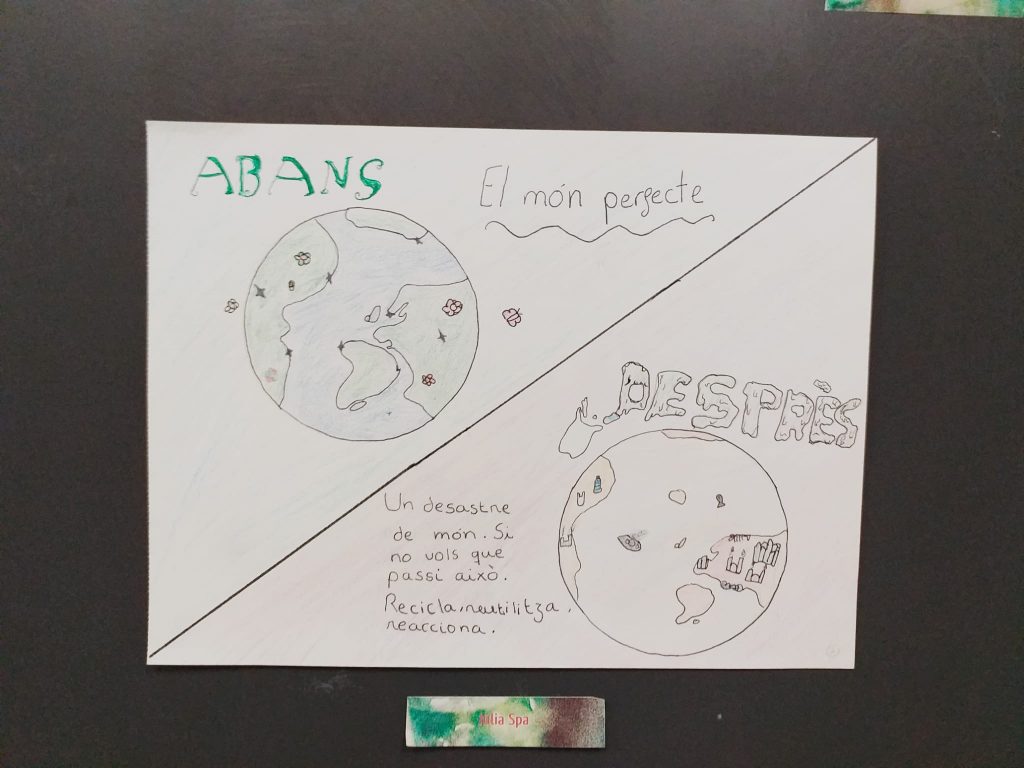 ABANS
El món perfecte
DESPRÈS
Un desastre
de món. Si
no vols que
passi això.
Recicla, reutilitza,
reacciona.
Júlia Spa